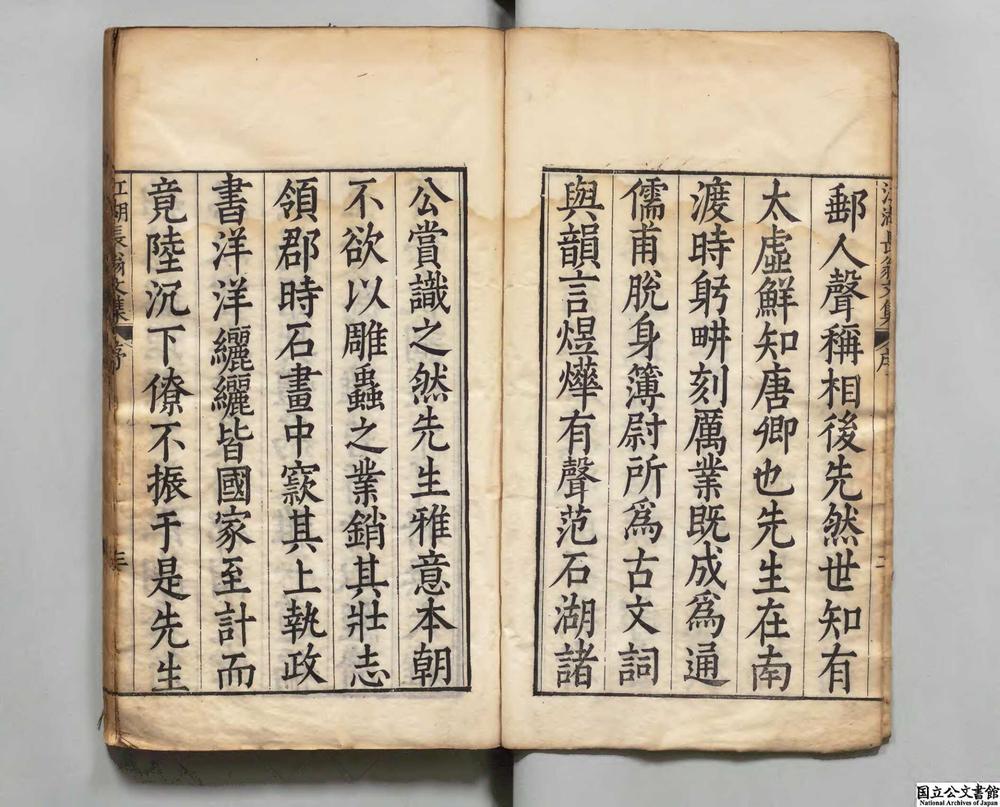 郵人聲稱相後先然世知有
太虛鮮知唐卿也先生在南
渡時躬畊刻厲業既成爲通
儒甫脫身簿尉所爲古文詞
與韻言煜燁有聲范石湖諸
公賞識之然先生雅意本朝
不欲以雕蟲之業銷其壯志
領郡時石畫中窾其上執政
書洋洋纚纚皆國家至計而
竟陸沉下僚不振于是先生
江湖長翁文集
序
国立公文書館
National Archives of Japan